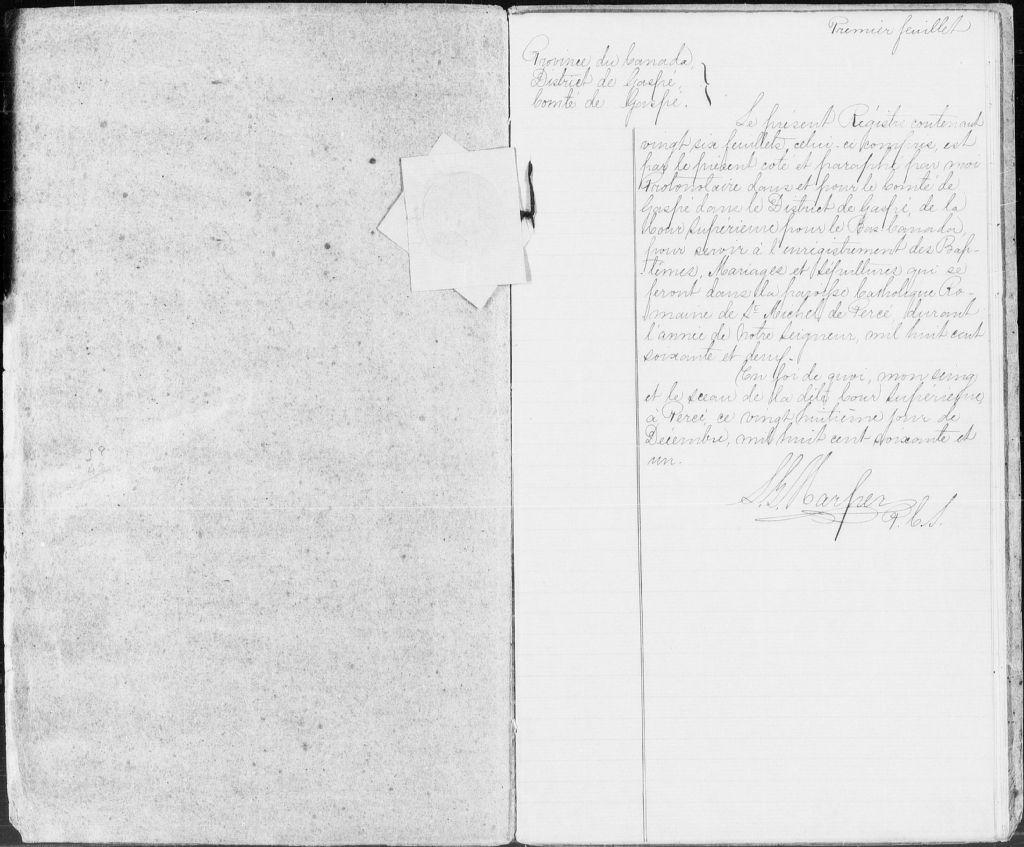 Premier feuillet
Province du Canada,
District de Gaspé,
Comté de Gaspé.
Le présent Régistre contenant
vingt six feuillets, celui-ci compris, est
par le présent coté et paraphé par moi
Protonotaire dans et pour le Comté de
Gaspé dans le District de Gaspé, de la
Cour Supérieure pour le Bas Canada,
pour servir à l'enrégistrement des Bap-
têmes, Mariages et Sépultures qui se
feront dans la paroisse Catholique Ro-
maine de St. Michel de Percé durant
l'année de Notre Seigneur, mil huit cent
soixante et deux.
En foi de quoi, mon seing
et le sceau de la dite Cour Supérieure
à Percé ce vingt huitième jour de
Décembre, mil huit cent soixante et
un.
P.C.S.